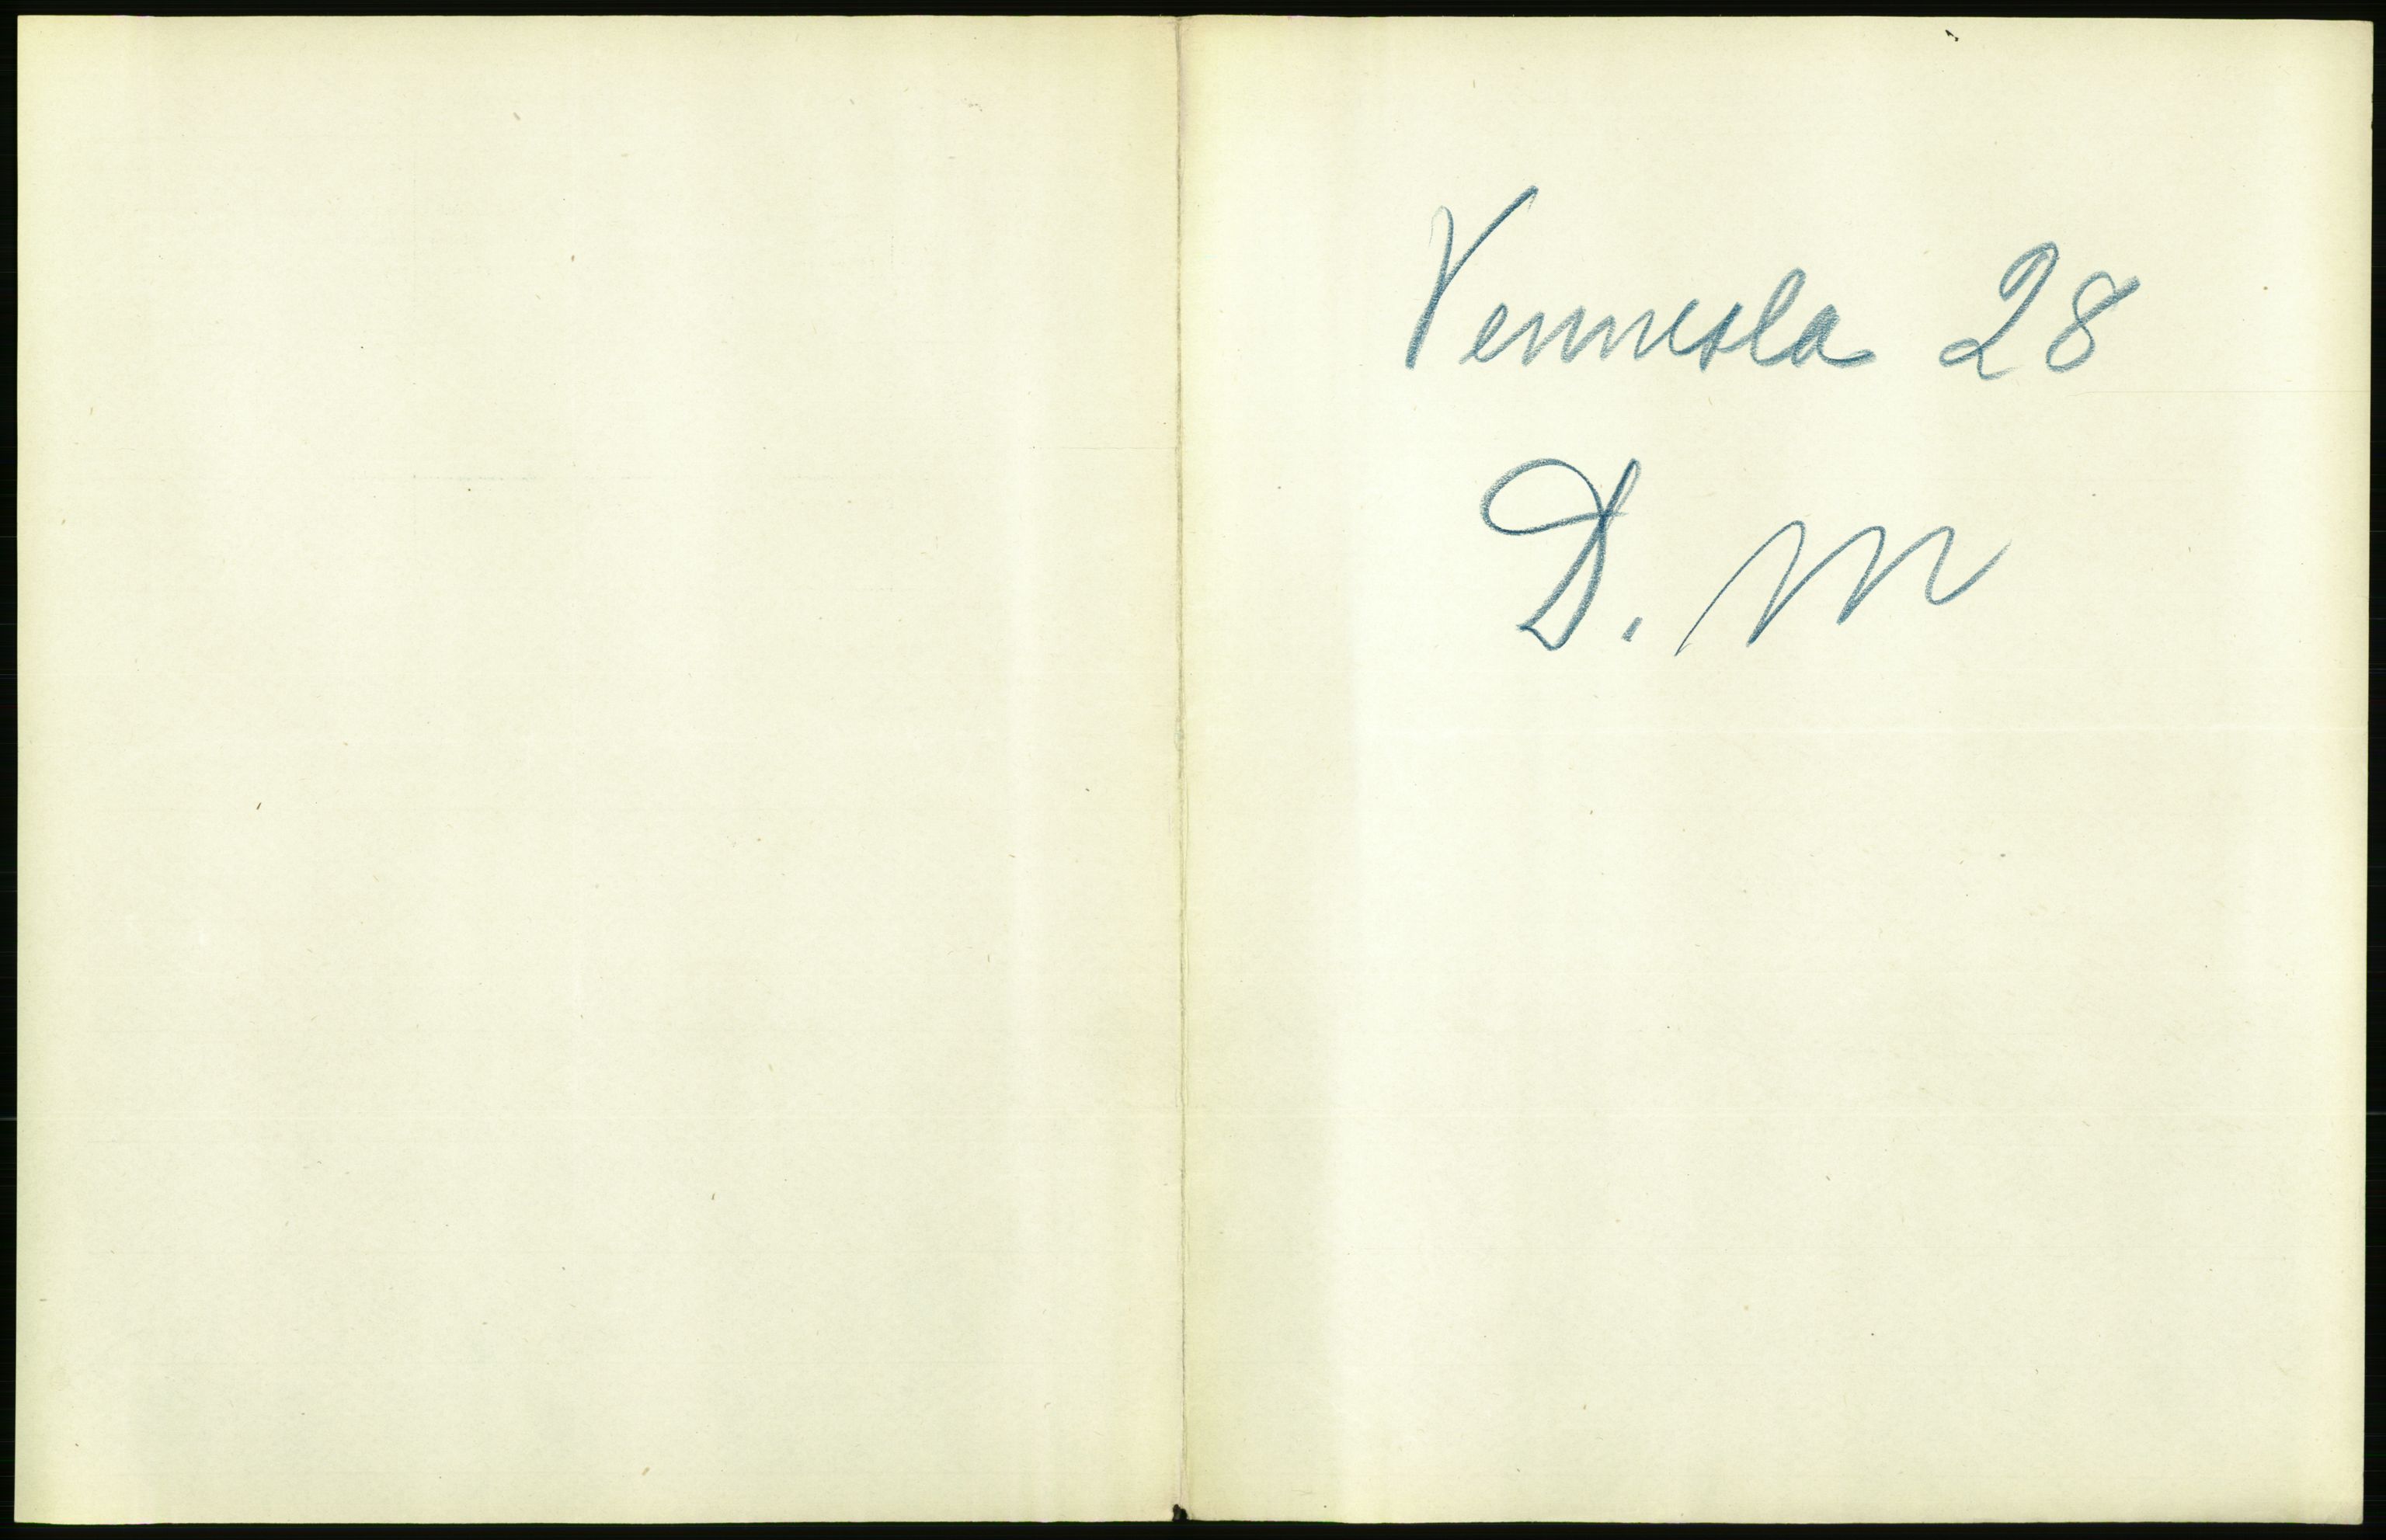 Vennesla 28
D. M